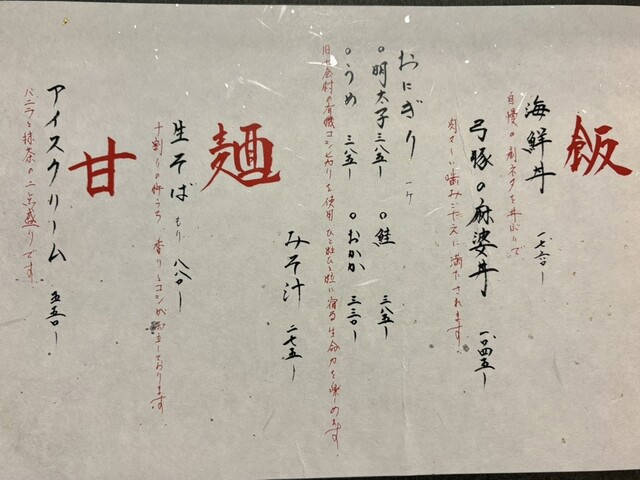 飯
海鮮丼 一七六〇ー
自慢の刺ネタを丼ぶりで
弓豚の麻婆丼 一、〇四五ー
肉々しい噛みごたえに満たされます。
おにぎり 一ケ
○明太子 三八五ー ○鮭 三八五ー
○うめ 三八五ー ○おかか 三三〇ー
の有機コシヒカリを使用 ひと粒ひと粒に宿る生命力を楽しめます
みそ汁 二七五ー
麺
生そば もり 八八〇ー
十割の手打ち 香りとコシが
甘
アイスクリーム 五五〇ー
バニラと抹茶の二点盛りです